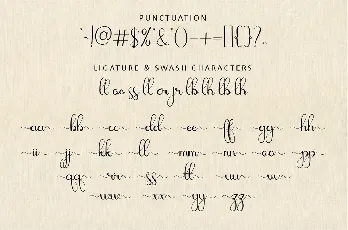 PUNCTUATION
`~!@#$%^&*()-+=[]{}?.
LIGATURE & SWASH CHARACTERS
ll oo ss ll or yr lb lh lb lh
aa bb cc dd ee ff gg hh
ii jj kk ll mm nn oo pp
qq rr ss tt uu vv
ww xx yy zz